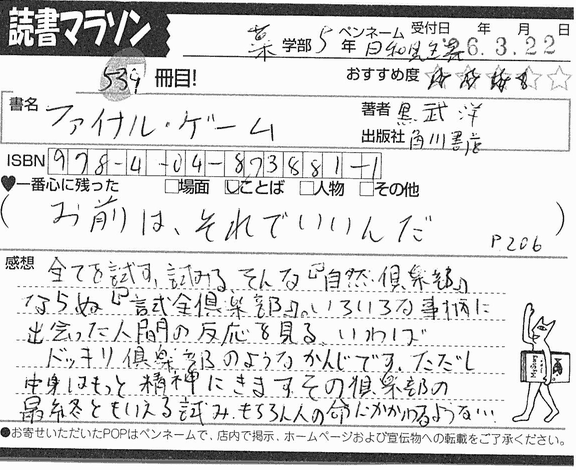 読書マラソン
薬 学部 5 年 ペンネーム 日和見 受付日 年 月 日 26.3.22
539 冊目! おすすめ度 ★★★★☆
書名 ファイナル・ゲーム
著者 黒武洋
出版社 角川書店
ISBN 978-4-04-873881-1
♥一番心に残った □場面 ☑ことば □人物 □その他
(お前は、それでいいんだ P206)
感想 全てを試す、試みる、そんな『自然倶楽部』
ならぬ『試全倶楽部』。いろいろな事柄に
出会った人間の反応を見る、いわば
ドッキリ倶楽部のようなかんじです。ただし
中身はもっと精神にきます。その倶楽部の
最終ともいえる試み、もちろん人の命にかかわるような…
●お寄せいただいたPOPはペンネームで、店内で掲示、ホームページおよび宣伝物への転載をご了承ください。